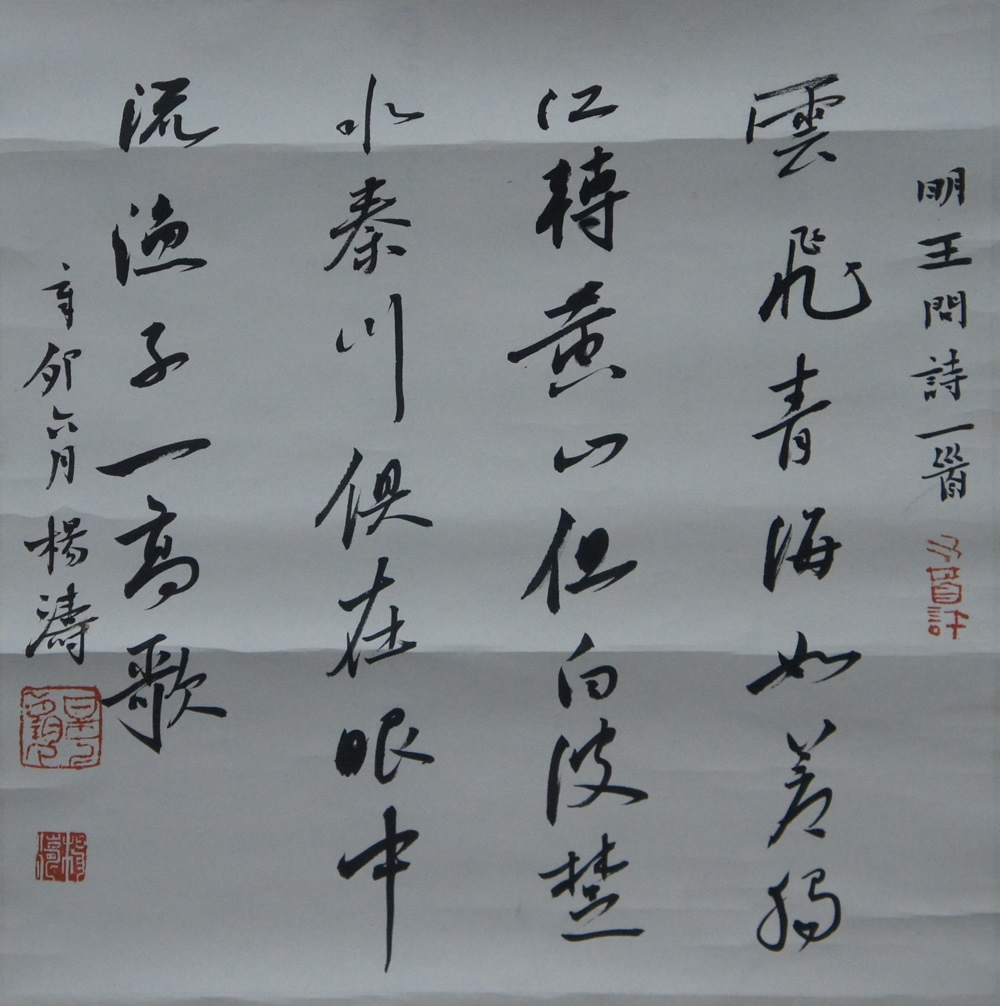 明王問詩一首
雲飛青海如蒼狗
江轉黃山但白波楚
水秦川俱在眼中
流漁子一高歌
辛卯六月楊濤